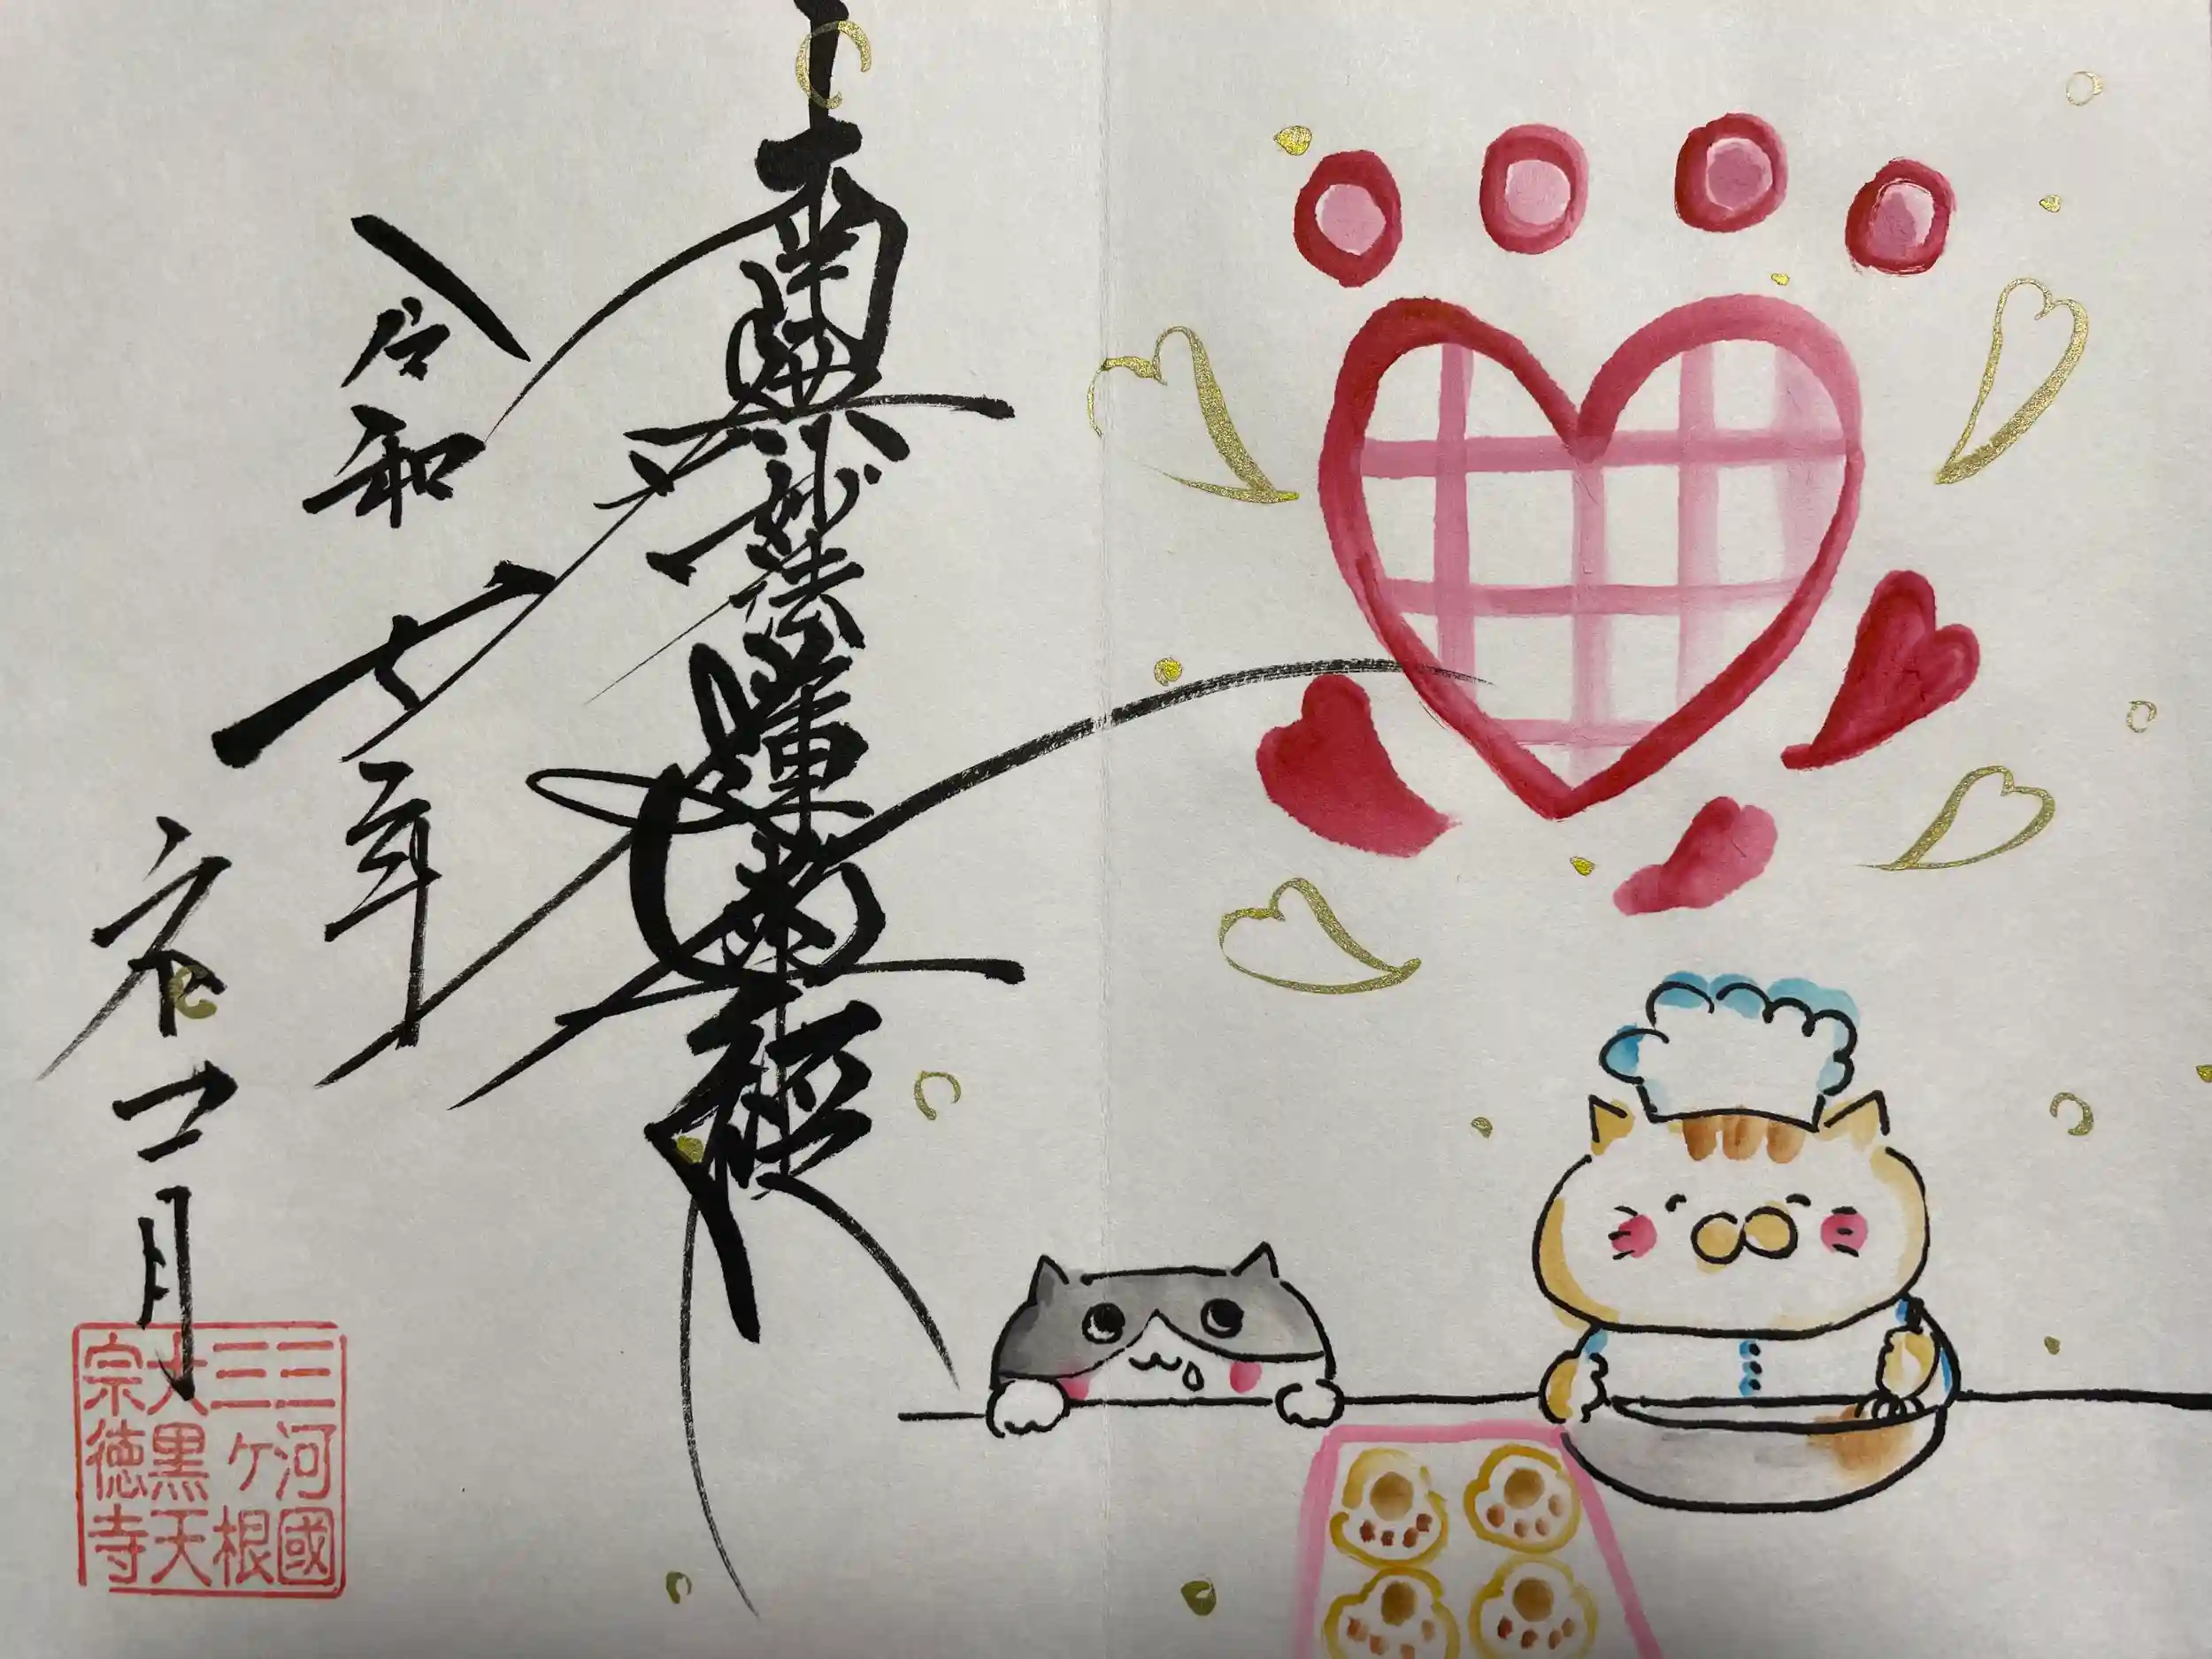 南無妙法蓮華経
令和七年
二月
三河國
三ヶ根
大黒天
宗徳寺